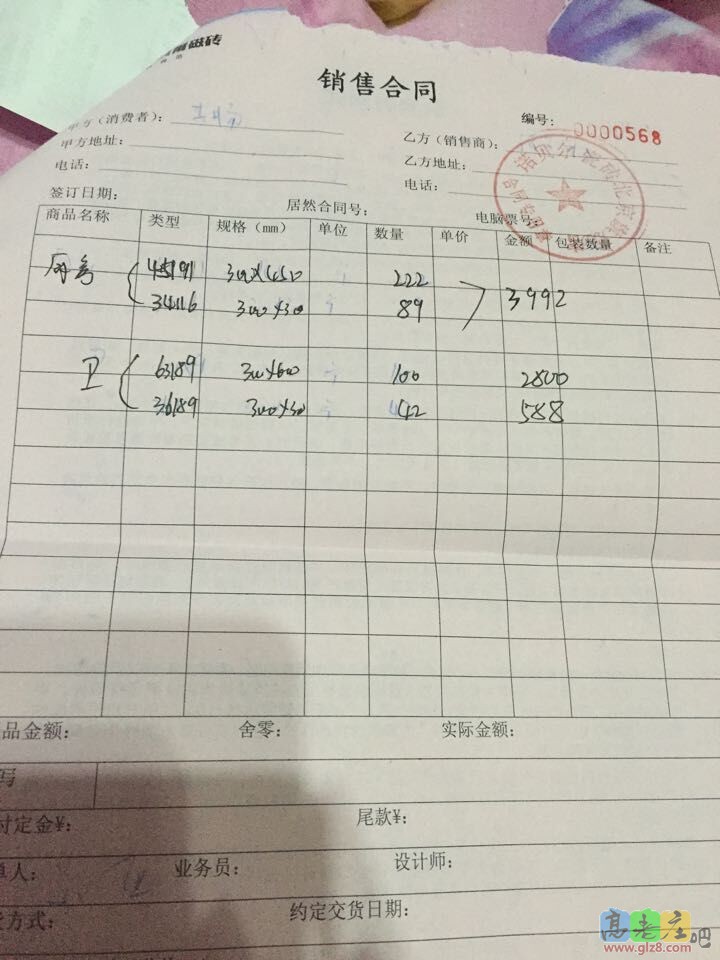 磁砖
销售合同
编号: 0000568
甲方（消费者）:
乙方（销售商）:
甲方地址:
乙方地址:
电话:
电话:
签订日期:
居然合同号:
电脑票号:
商品名称 类型 规格（mm） 单位 数量 单价 金额 包装数量 备注
45191 300×450 222
3992
34116 300×300 89
卫 63189 300×600 100 2800
36189 300×30 42 588
品金额: 舍零: 实际金额:
写
付定金¥: 尾款¥:
单人: 业务员: 设计师:
方式: 约定交货日期:
高老庄吧
www.glz8.com